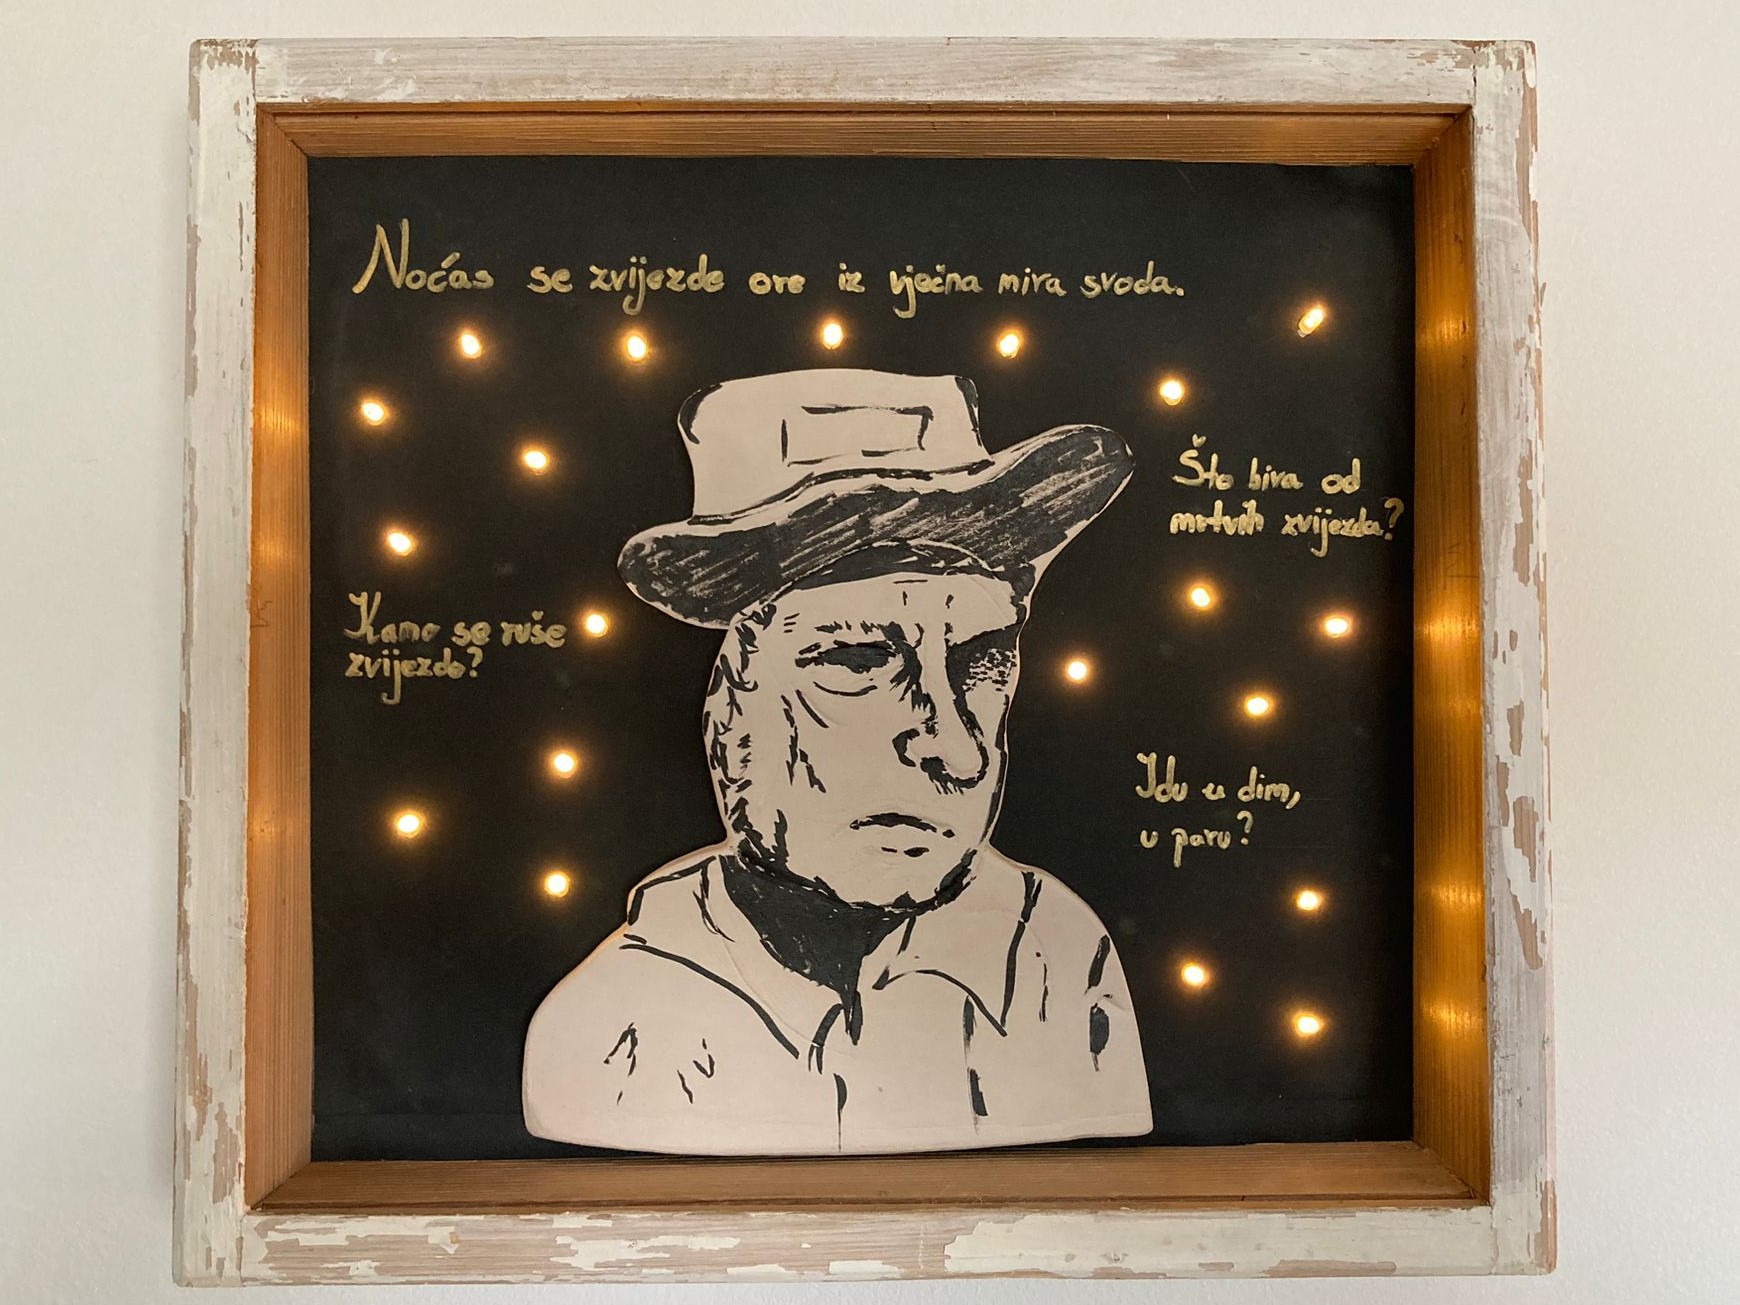 Noćas se zvijezde ore iz vječna mira svoda.
Što biva od
mrtvih zvijezda?
Kamo se ruše
zvijezde?
Idu u dim,
u paru?